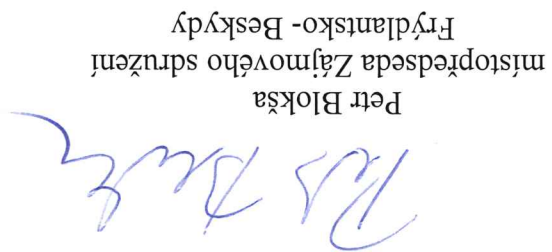 Petr Blokša
místopředseda Zájmového sdružení
Frýdlantsko- Beskydy